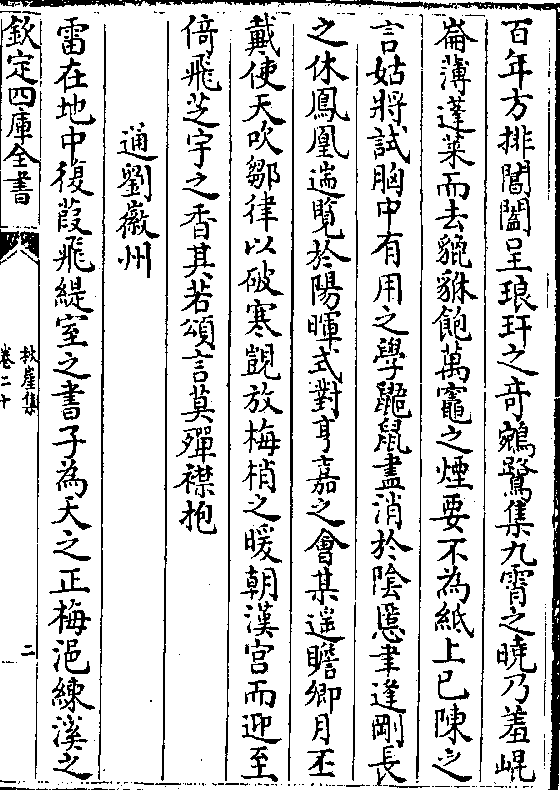 百年方排閶闔呈琅玕之奇鵷鷺集九霄之曉乃羞崐
崙薄蓬萊而去貔貅飽萬竈之煙要不為紙上已陳之
言姑將試胸中有用之學鼫鼠盡消於陰慝聿逢剛長
之休鳳凰遄覽於陽暉式對亨嘉之會某遥瞻卿月丕
戴使天吹鄒律以破寒覬放梅梢之暖朝漢宫而迎至
倍飛芝宇之香其若頌言莫殫襟抱
通劉徽州
雷在地中復葭飛緹室之書子為天之正梅浥練溪之
欽定四庫全書
秋崖集
卷二十
二